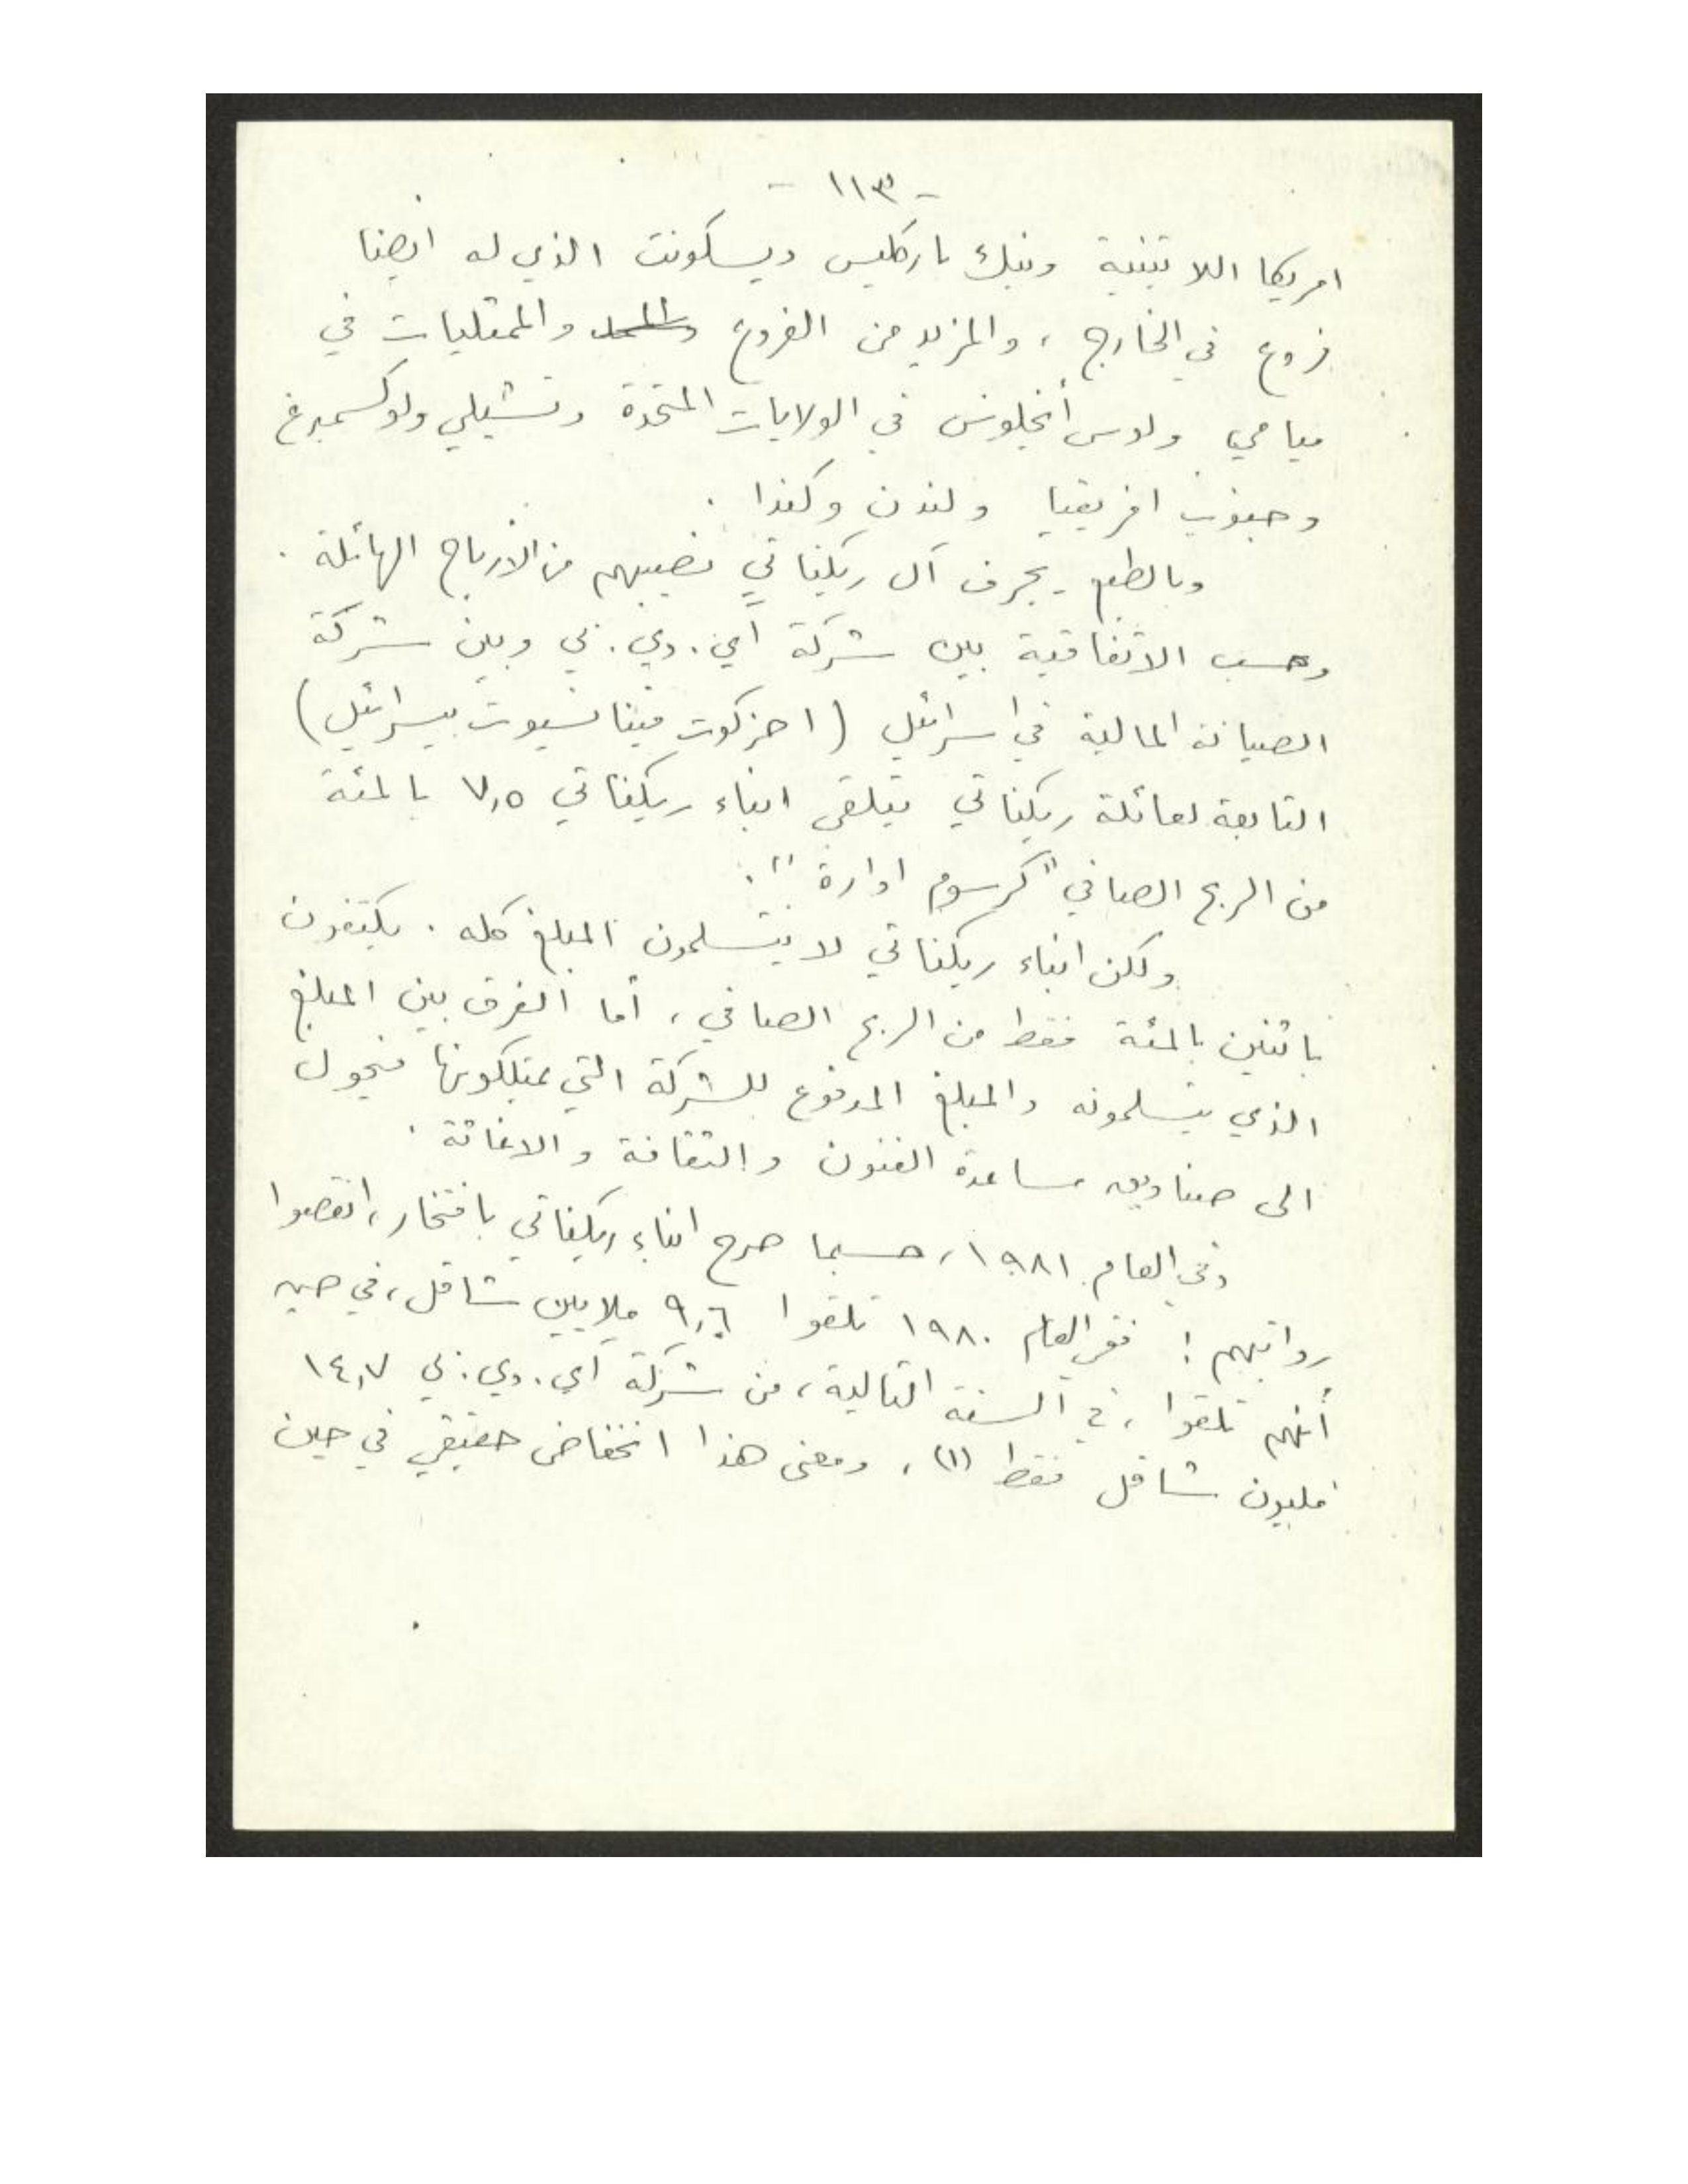 - ١١٣ -
امريكا اللاتينية وبنك باركليس ديسكونت الذي له ايضا
فروع في الخارج ، والمزيد من الفروع والممثليات في
ميامي ولوس أنجلوس في الولايات المتحدة وتشيلي ولوكسمبرغ
وجنوب افريقيا ولندن وكندا .
وبالطبع يجرف آل ريكناتي نصيبهم من الارباح الهائلة .
وحسب الاتفاقية بين شركة آي . دي . بي وبين شركة
الصيانة المالية في اسرائيل ( احزكوت فينانسيوت بيسرائيل )
التابعة لعائلة ريكناتي يتلقى ابناء ريكناتي ٧,٥ بالمئة
من الربح الصافي " كرسوم ادارة " .
ولكن ابناء ريكناتي لا يتسلمون المبلغ كله . يكتفون
باثنين بالمئة فقط من الربح الصافي ، أما الفرق بين المبلغ
الذي يتسلمونه والمبلغ المدفوع للشركة التي يمتلكونها فيحول
الى صناديق مساعدة الفنون والثقافة والاغاثة .
وفي العام ١٩٨١ ، حسبما صرح ابناء ريكناتي بافتخار ، انقصوا
رواتبهم ! ففي العام ١٩٨٠ تلقوا ٩,٦ ملايين شاقل ، في حين
أنهم تلقوا ، في السنة التالية ، من شركة آي . دي . بي ١٤,٧
مليون شاقل فقط (١) ، ومعنى هذا انخفاض حقيقي في حين